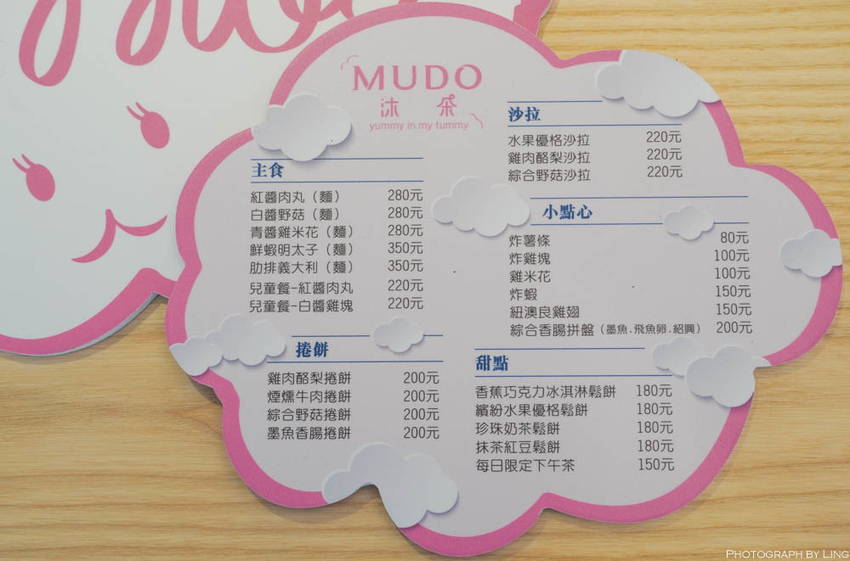 MUDO
沐朵
yummy in my tummy
主食
紅醬肉丸（麵） 280元
白醬野菇（麵） 280元
青醬雞米花（麵） 280元
鮮蝦明太子（麵） 350元
肋排義大利（麵） 350元
兒童餐-紅醬肉丸 220元
兒童餐-白醬雞塊 220元
捲餅
雞肉酪梨捲餅 200元
煙燻牛肉捲餅 200元
綜合野菇捲餅 200元
墨魚香腸捲餅 200元
沙拉
水果優格沙拉 220元
雞肉酪梨沙拉 220元
綜合野菇沙拉 220元
小點心
炸薯條 80元
炸雞塊 100元
雞米花 100元
炸蝦 150元
紐澳良雞翅 150元
綜合香腸拼盤（墨魚.飛魚卵.紹興） 200元
甜點
香蕉巧克力冰淇淋鬆餅 180元
繽紛水果優格鬆餅 180元
珍珠奶茶鬆餅 180元
抹茶紅豆鬆餅 180元
每日限定下午茶 150元
PHOTOGRAPH BY LING